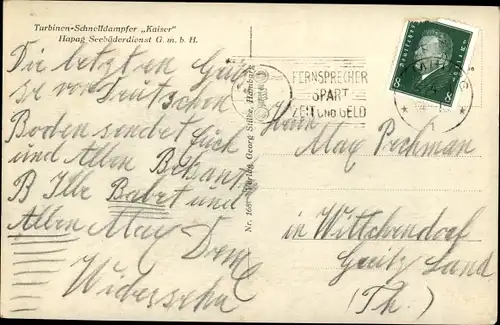 Turbinen-Schnelldampfer „Kaiser"
Hapag Seebäderdienst G. m. b. H.
Die letzten Grü
se von Deutschen
Boden sendet
und Allen
B Ille Babet und
Allen Max
Widersehn
Nr. 168 Verlag Georg Stilke, Hamburg
FERNSPRECHER
SPART
ZEIT UND GELD
8 8
Herrn
Max Pechman
in Wittchendorf
Greitz Land
(Th.)